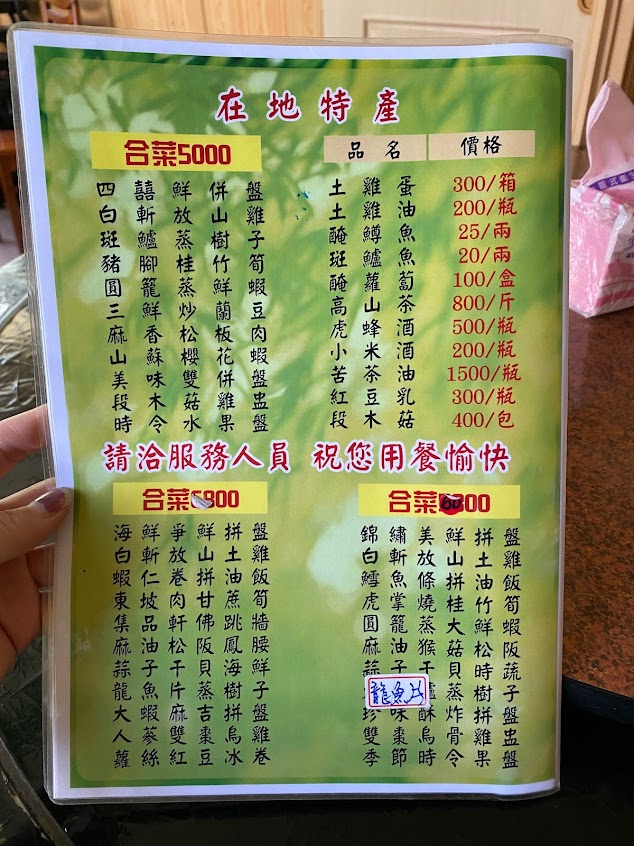 在地特產
合菜5000
四囍鮮併盤
白斬放山雞
斑鱸蒸樹子
豬腳桂竹筍
圓籠蒸鮮蝦
三鮮炒蘭豆
麻香松板肉
山蘇櫻花蝦
美味雙併盤
段木菇雞盅
時令水果盤
品名 價格
土雞蛋 300/箱
土雞油 200/瓶
醃鱒魚 25/兩
斑鱸魚 20/兩
醃蘿蔔 100/盒
高山茶 800/斤
虎蜂酒 500/瓶
小米酒 200/瓶
苦茶油 1500/瓶
紅豆乳 300/瓶
段木菇 400/包
請洽服務人員 祝您用餐愉快
合菜 800
海鮮爭鮮拼盤
白斬放山土雞
蝦仁卷拼油飯
東坡肉甘蔗筍
集品軒佛跳牆
麻油松阪鳳腰
蒜子干貝海鮮
龍魚片蒸樹子
大蝦麻吉拼盤
人蔘雙棗烏雞
蘿絲紅豆冰卷
合菜
錦繡美鮮拼盤
白斬放山土雞
鱈魚條拼油飯
虎掌燒桂竹筍
圓籠蒸大鮮蝦
麻油猴菇松阪
蒜子干貝時蔬
龍魚片蒸樹子
珍味酥炸拼盤
雙棗烏骨雞盅
季節時令果盤